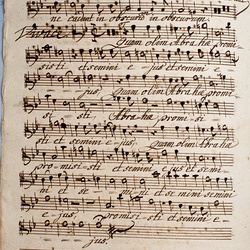 ne cadant in obscurum in obscurum.
Quam olim Abrahæ promi
sisti et semini ejus et semini
ejus, Quam olim Abrahæ promi
sisti, Abrahæ promisi
sti et semini ejus, Quam olim Abrahæ
promisisti et semini ejus et semi
ni et semini et semini ejus et semini
ejus, promisisti et semini e
jus.